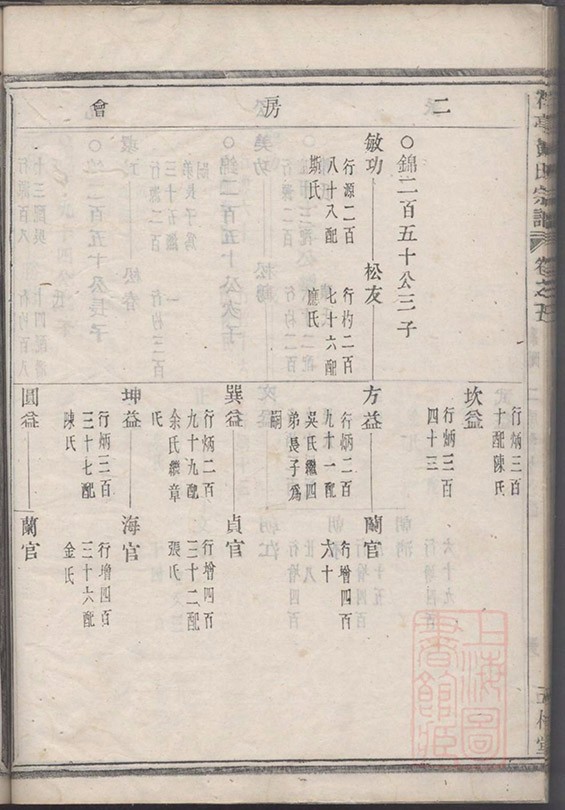 二房會
○錦二百五十公三子
敏功
行源二百
八十八配
斯氏
松友
行杓二百
七十六配
應氏
行炳三百
十配陳氏
坎益
行炳三百
四十三
方益
行炳二百
九十一配
吳氏繼四
弟長子爲
嗣
蘭官
行增四百
六十
巽益
行炳二百
九十九配
余氏繼章
氏
貞官
行增四百
三十二配
張氏
坤益
行炳三百
三十七配
陳氏
海官
行增四百
三十六配
金氏
圓益
蘭官
卷之
上海圖
書館藏